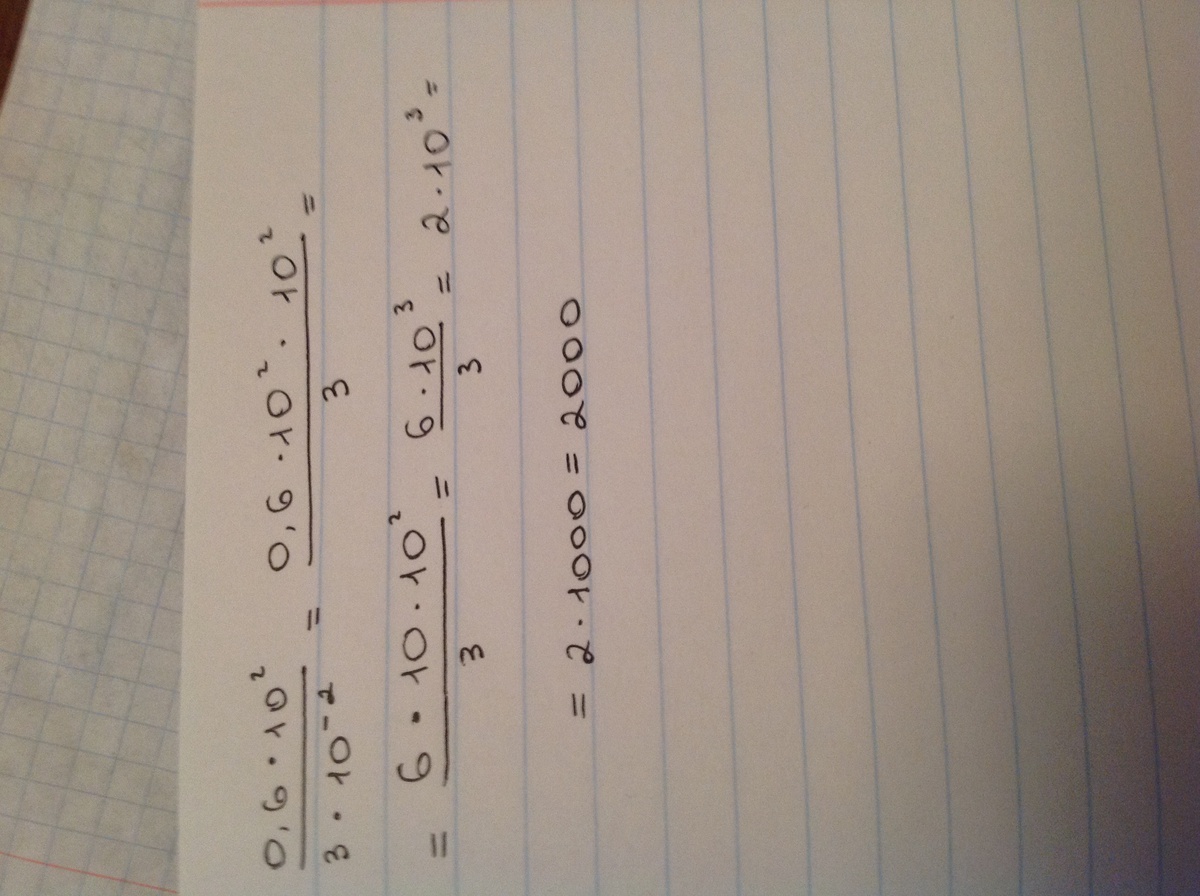 0,6 · 10² / 3 · 10⁻² = 0,6 · 10² · 10² / 3 =
= 6 · 10 · 10² / 3 = 6 · 10³ / 3 = 2 · 10³ =
= 2 · 1000 = 2000